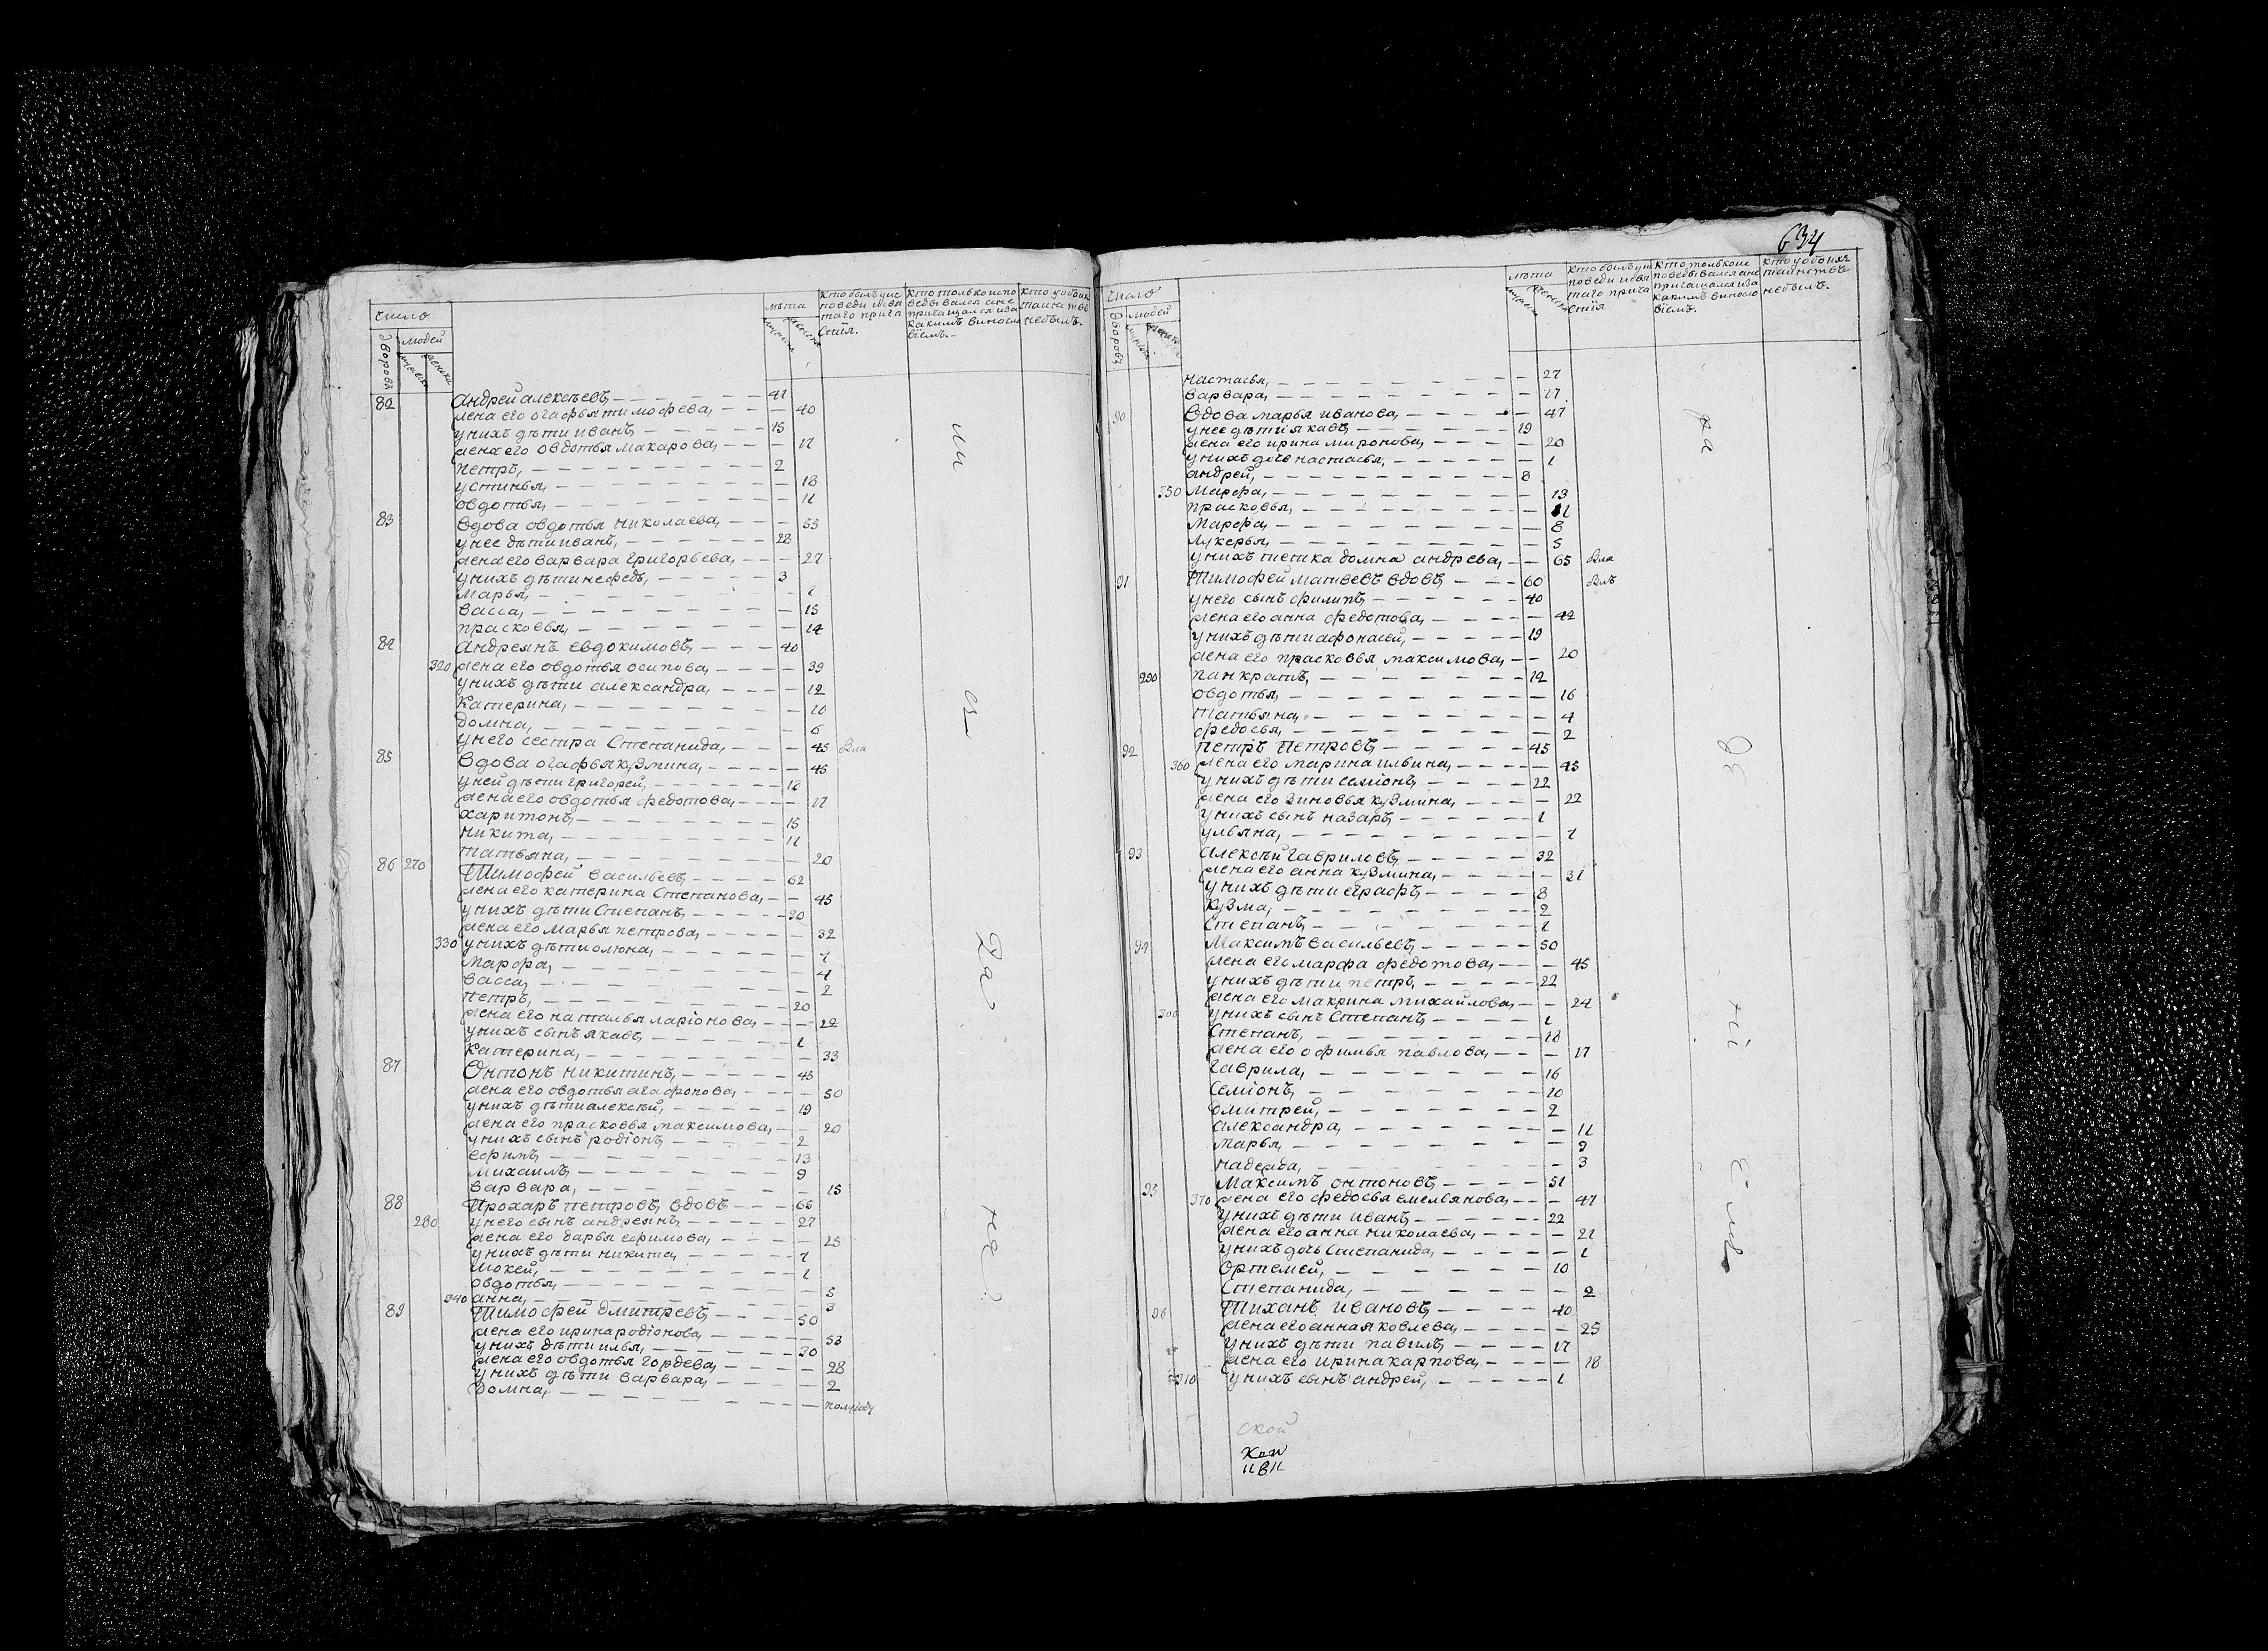 число
дворовъ
людей
мужеска
женска
лѣта
мужеска
женска
кто былъ у ис
поведи и свя
таго прича
стия.
кто только испо
ведывался а не
причащался и за
какимъ винослов
ïемъ.
кто у обоихъ
таинствъ
небылъ.
82 Андрей алексѣевъ, 41
жена его огафья тимофева, 40
у нихъ дѣти иванъ, 15
жена его овдотья макарова, 17
петръ, 2
устинья, 18
овдотья, 11
83 вдова овдотья николаева, 55
у нее дѣти иванъ, 28
жена его варвара григорьева, 27
у нихъ дѣти нефедъ, 3
марья, 1
васса, 15
прасковья, 14
84 Андреянъ евдокимовъ, 40
320 жена его овдотья осипова, 39
у нихъ дѣти александра, 12
катерина, 10
домна, 6
у него сестра Степанида, 45 Бла
85 вдова огафья кузмина, 45
у ней дѣти григорей, 18
жена его овдотья федотова, 17
харитонъ, 15
никита, 11
татьяна, 20
86 270 Тимофей васильевъ, 62
жена его катерина Степанова, 45
у нихъ дѣти Степанъ, 30
жена его марья петрова, 32
330 у нихъ дѣти олюна, 7
марфа, 4
васса, 2
петръ, 20
жена его наталья ларïонова, 22
у нихъ сынъ якавъ, 1
катерина, 33
87 Онтонъ никитинъ, 45
жена его овдотья агафонова, 50
у нихъ дѣти алексѣй, 19
жена его прасковья максимова, 20
у нихъ сынъ родïонъ, 2
ефимъ, 13
михаилъ, 9
варвара, 15
88 Прохаръ петровъ вдовъ, 65
280 у него сынъ андреянъ, 27
жена его дарья ефимова, 25
у нихъ дѣти никита, 7
мокей, 1
овдотья, 5
340 анна, 3
89 Тимофей дмитревъ, 50
жена его ирина родïонова, 53
у нихъ дѣти илья, 30
жена его овдотья гордева, 28
у нихъ дѣти варвара, 2
домна, полгоду
ни
ез
да
ка
634
число
дворовъ
людей
мужеска
женска
лѣта
мужеска
женска
кто былъ у ис
поведи и свя
таго прича
стия
кто только ис
поведывался а не
причащался и за
какимъ винослов
ïемъ.
кто у обоихъ
таинствъ
небылъ.
настасья, 27
варвара, 17
90 Вдова марья иванова, 47
у нее дѣти якавъ, 19
жена его ирина миронова, 20
у нихъ дочь настасья, 1
андрей, 8
350 Марфа, 13
прасковья, 11
марфа, 8
лукерья, 5
у нихъ тетка домна андрева, 65 Бла
91 Тимофей матвевъ вдовъ, 60 Блъ
у него сынъ филипъ, 40
жена его анна федотова, 42
у нихъ дѣти афонасей, 19
жена его прасковья максимова, 20
290 панкратъ, 12
овдотья, 16
татьяна, 4
федосья, 2
92 петръ петровъ, 45
360 жена его марина ильина, 45
у нихъ дѣти семïонъ, 22
жена его зиновья кузмина, 22
у нихъ сынъ назаръ, 1
ульяна, 7
93 алексѣй гавриловъ, 32
жена его анна кузмина, 31
у нихъ дѣти еграфъ, 8
кузма, 2
Степанъ, 1
94 Максимъ васильевъ, 50
жена его марфа федотова, 45
у нихъ дѣти петръ, 22
жена его макрина михайлова, 24
300 у нихъ сынъ Степанъ, 1
Степанъ, 18
жена его офимья павлова, 17
гаврила, 16
семïонъ, 10
дмитрей, 2
александра, 11
марья, 9
надежда, 3
95 Максимъ онтоновъ, 51
370 жена его федосья емельянова, 47
у нихъ дѣти иванъ, 22
жена его анна николаева, 21
у нихъ дочь Степанида, 1
ортемей, 10
Степанида, 2
96 Тиханъ ивановъ, 40
жена его анна яковлева, 25
у нихъ дѣти павилъ, 17
жена его ирина карпова, 18
310 у нихъ сынъ андрей, 1
ской